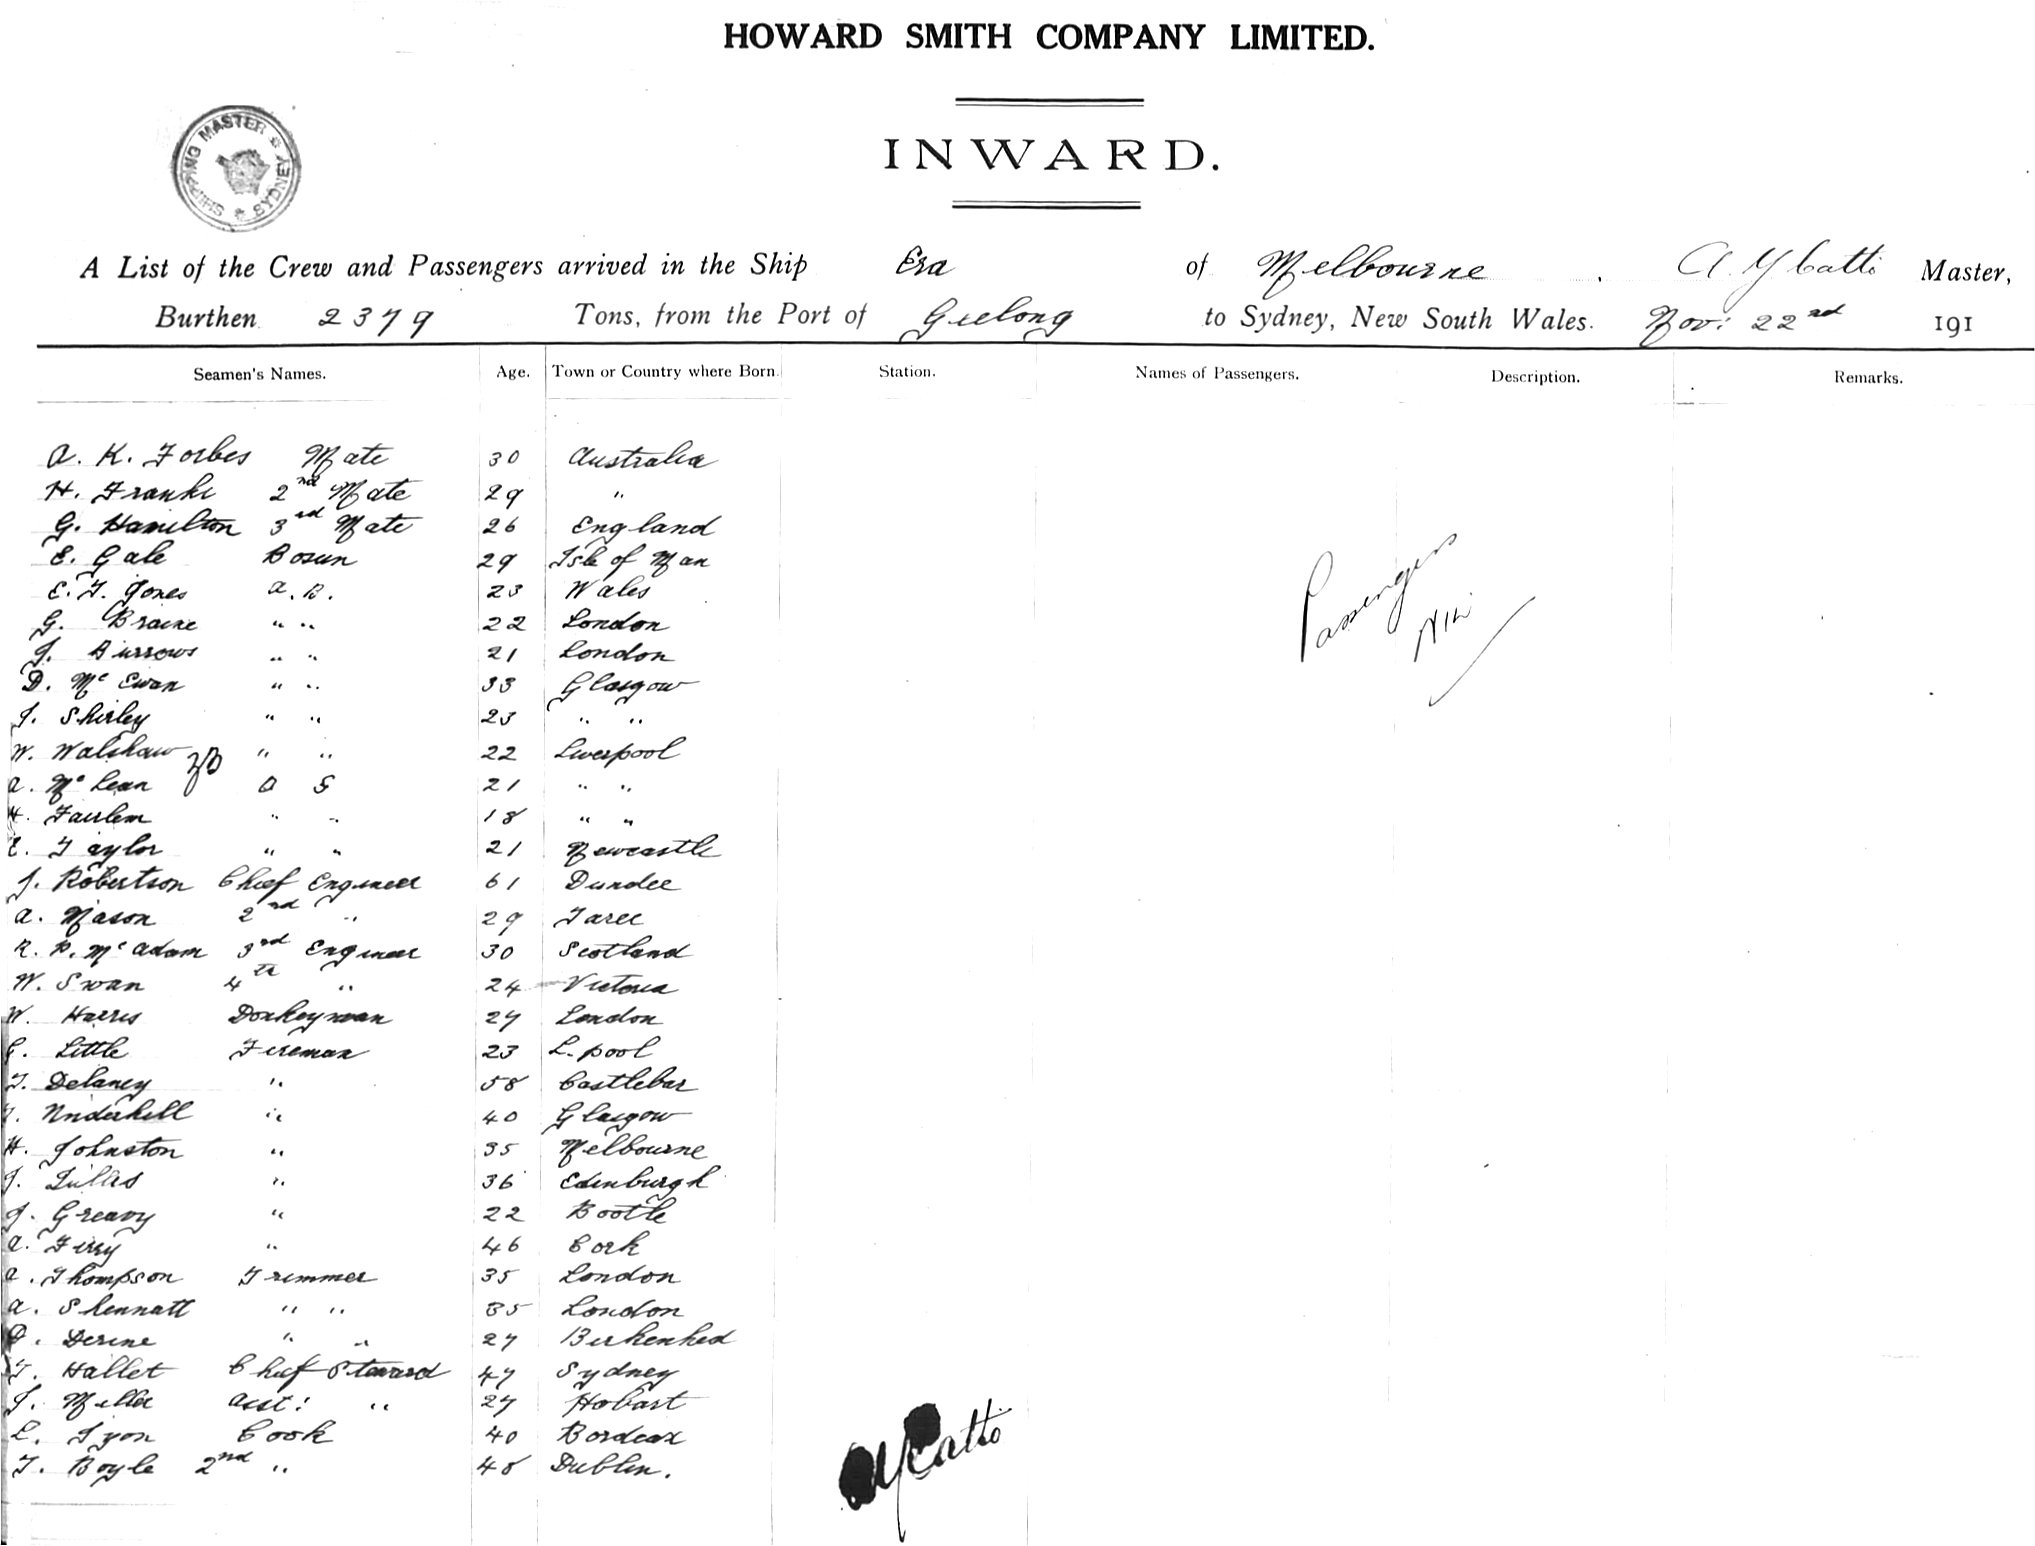 HOWARD SMITH COMPANY LIMITED.
INWARD.
SHIPPING MASTER SYDNEY
A List of the Crew and Passengers arrived in the Ship Era of Melbourne. A Y Catto Master,
Burthen 2379 Tons, from the Port of Geelong to Sydney, New South Wales. Nov: 22nd 191
Seamen's Names. Age. Town or Country where Born. Station. Names of Passengers. Description. Remarks.
A. K. Forbes Mate 30 Australia
H. Franke 2nd Mate 29 "
G. Hamilton 3rd Mate 26 England
E. Gale Bosun 29 Isle of Man
E. T. Jones A.B. 23 Wales
G. " " 22 London
J. Burrows " " 21 London
D. Mc Ewan " " 33 Glasgow
J. Shirley " " 23 " "
W. Walshaw " " 22 Liverpool
A. Mc Lean O S 21 " "
H. " " 18 " "
E. Taylor " " 21 Newcastle
J. Robertson Chief Engineer 61 Dundee
A. Mason 2nd " 29 Taree
R. P. Mc Adam 3rd Engineer 30 Scotland
W. Swan 4th " 24 Victoria
W. Harris Donkeyman 27 London
G. Little Fireman 23 L.pool
T. Delaney " 58 Castlebar
T. Underhill " 40 Glasgow
H. Johnston " 35 Melbourne
J. " 36 Edinburgh
J. Greavy " 22 Bootle
A. " 46 Cork
A. Thompson Trimmer 35 London
A. " " 35 London
D. " " 27 Birkenhed
T. Hallet Chief Steward 47 Sydney
J. Miller Asst: " 27 Hobart
L. Cook 40 Bordeax
T. Boyle 2nd " 48 Dublin.
Passengers
Nil
A Y Catto